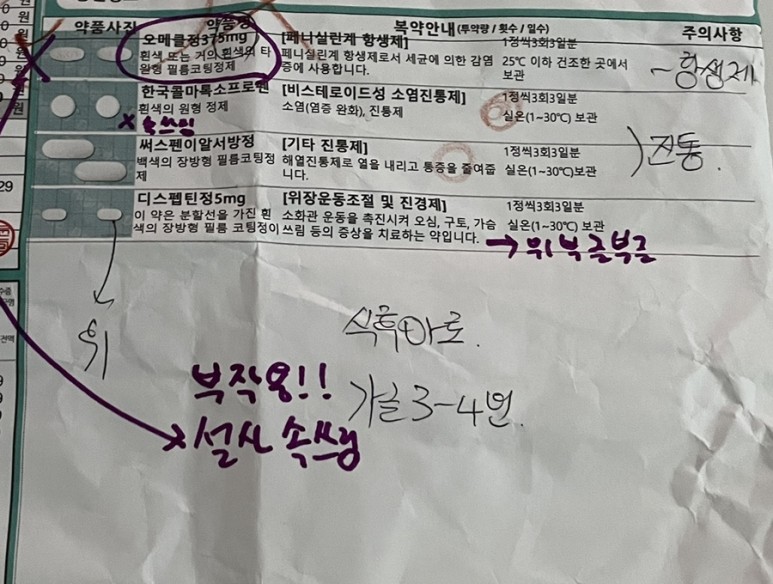 약품사진 약품명 복약안내 (투약량 / 횟수 / 일수) 주의사항
오메클정375mg [페니실린계 항생제] 1정씩3회3일분
흰색 또는 거의 흰색의 타 페니실린계 항생제로서 세균에 의한 감염 25℃ 이하 건조한 곳에서
원형 필름코팅정제 증에 사용합니다. 보관
~항생제
한국콜마록소프로펜 [비스테로이드성 소염진통제] 1정씩3회3일분
흰색의 원형 정제 소염(염증 완화), 진통제 실온(1~30℃) 보관
x 속쓰림
써스펜이알서방정 [기타 진통제] 1정씩3회3일분
백색의 장방형 필름코팅정 해열진통제로 열을 내리고 통증을 줄여줍 실온(1~30℃) 보관
제 니다.
) 진통.
디스펩틴정5mg [위장운동조절 및 진경제] 1정씩3회3일분
이 약은 분할선을 가진 흰 소화관 운동을 촉진시켜 오심, 구토, 가슴 실온(1~30℃) 보관
색의 장방형 필름 코팅정이 쓰림 등의 증상을 치료하는 약입니다.
→ 위 부글부글
위
식후 바로.
부작용!!
가글 3-4번.
x 설사 속쓰림
29